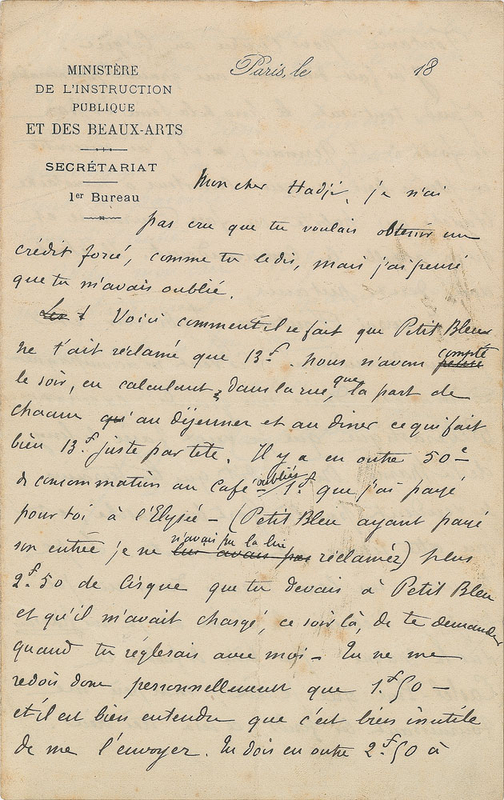 MINISTÈRE
DE L'INSTRUCTION
PUBLIQUE
ET DES BEAUX-ARTS
SECRÉTARIAT
1er Bureau
Paris, le 18
Mon cher Hadji, je n'ai
pas cru que tu voulais obtenir un
crédit forcé, comme tu le dis, mais j'ai pensé
que tu m'avais oublié.
Voici comment il se fait que Petit Bleu
ne t'ait réclamé que 13.f Nous n'avons compté
le soir, en calculant, dans la rue, que la part de
chacun qu' au déjeuner et au diner ce qui fait
bien 13.f juste par tête. Il y a en outre 50c
de consommation au Café oubliés 1.f que j'ai payé
pour toi à l'Elysée – (Petit Bleu ayant payé
son entrée je ne n'avais pu la lui lui avais pas réclamer) plus
2.f50 de Cirque que tu devais à Petit Bleu
et qu'il m'avait chargé, ce soir là, de te demander
quand tu règlerais avec moi – Tu ne me
redois donc personnellement que 1.f50 –
et il est bien entendu que c'est bien inutile
de me l'envoyer. Tu dois en outre 2.f50 à